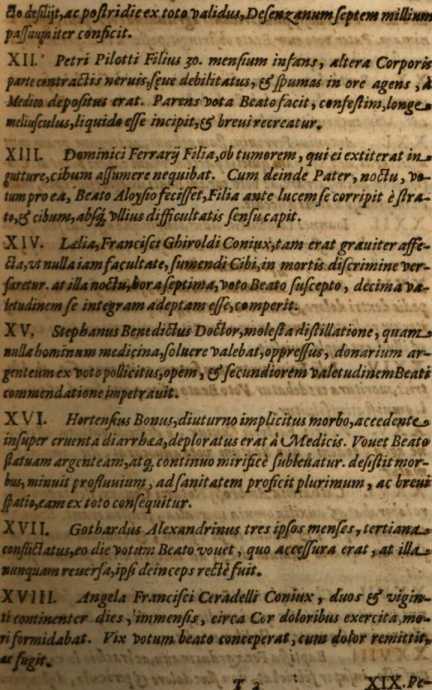 cto desilijt, ac postridie ex toto validus, Desenzanum septem millium
passuum iter conficit.
XII. Petri Pilotti Filius 30. mensium infans, altera Corporis
parte contractis neruis, seue debilitatus, & spumas in ore agens, à
Medico depositus erat. Parens vota Beato facit, confestim, longe
meliusculus, liquido esse incipit, & breui recreatur.
XIII. Dominici Ferrarij Filia, ob tumorem, qui ei extiterat in
gutture, cibum assumere nequibat. Cum deinde Pater, noctu, vo
tum pro ea, Beato Aloysio fecisset, Filia ante lucem se corripit è stra-
to, & cibum, absq; vllius difficultatis sensu capit.
XIV. Lælia, Francisci Ghiroldi Coniux, tam erat grauiter affe-
cta, vt nulla iam facultate, sumendi Cibi, in mortis discrimine ver-
saretur. at illa noctu, hora septima, voto Beato suscepto, decima va-
letudinem se integram adeptam esse, comperit.
XV. Stephanus Benedictus Doctor, molesta distillatione, quam
nulla hominum medicina, soluere valebat, oppressus, donarium ar-
genteum ex voto pollicitus, opem, & secundiorem valetudinem Beati
commendatione impetrauit.
XVI. Hortensius Bonus, diuturno implicitus morbo, accedente
insuper cruenta diarrhæa, deploratus erat à Medicis. Vouet Beato
statuam argenteam, atq; continuo mirificè subleuatur. desistit mor-
bus, minuit profluuium, ad sanitatem proficit plurimum, ac breui
spatio, eam ex toto consequitur.
XVII. Gothardus Alexandrinus tres ipsos menses, tertiana
conflictatus, eo die votum Beato vouet, quo accessura erat, at illa
nunquam reuersa, ipsi deinceps rectè fuit.
XVIII. Angela Francisci Ceradelli Coniux, duos & vigin-
ti continenter dies, immensis, circa Cor doloribus exercita, mo-
ri formidabat. Vix votum beato conceperat, cum dolor remittit,
ac fugit.
T 2 XIX. Pe-